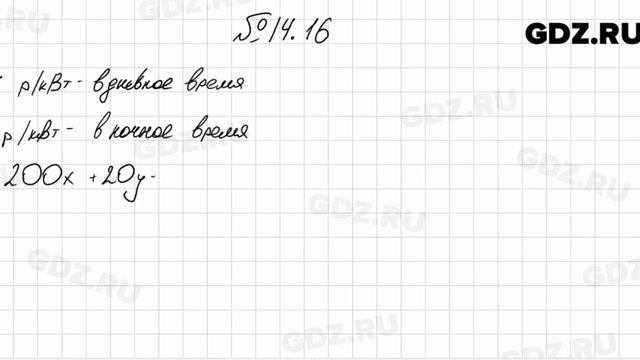 №14.16
GDZ.RU
р/кВт - в дневное время
р/кВт - в ночное время
200x + 20y -
GDZ.RU
GDZ.RU
GDZ.RU
GDZ.RU
GDZ.RU
GDZ.RU
GDZ.RU
GDZ.RU
GDZ.RU